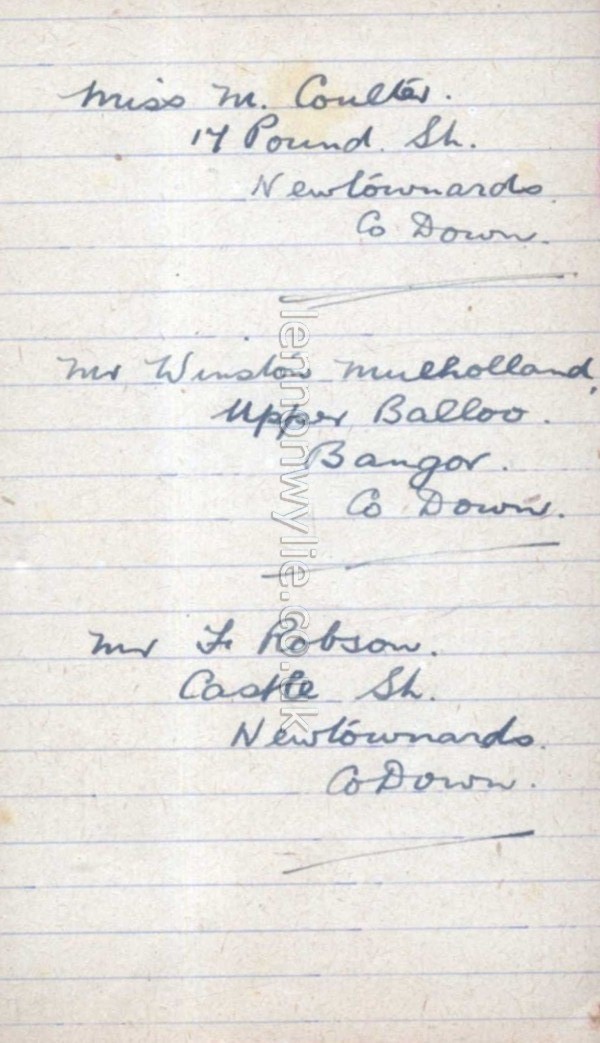 Miss M. Coulter.
17 Pound. St.
Newtownards.
Co Down.
Mr. Winston Mulholland,
Upper Balloo.
Bangor.
Co Down.
Mr F. Robson.
Castle St.
Newtownards.
Co Down.
lennonwylie.co.uk